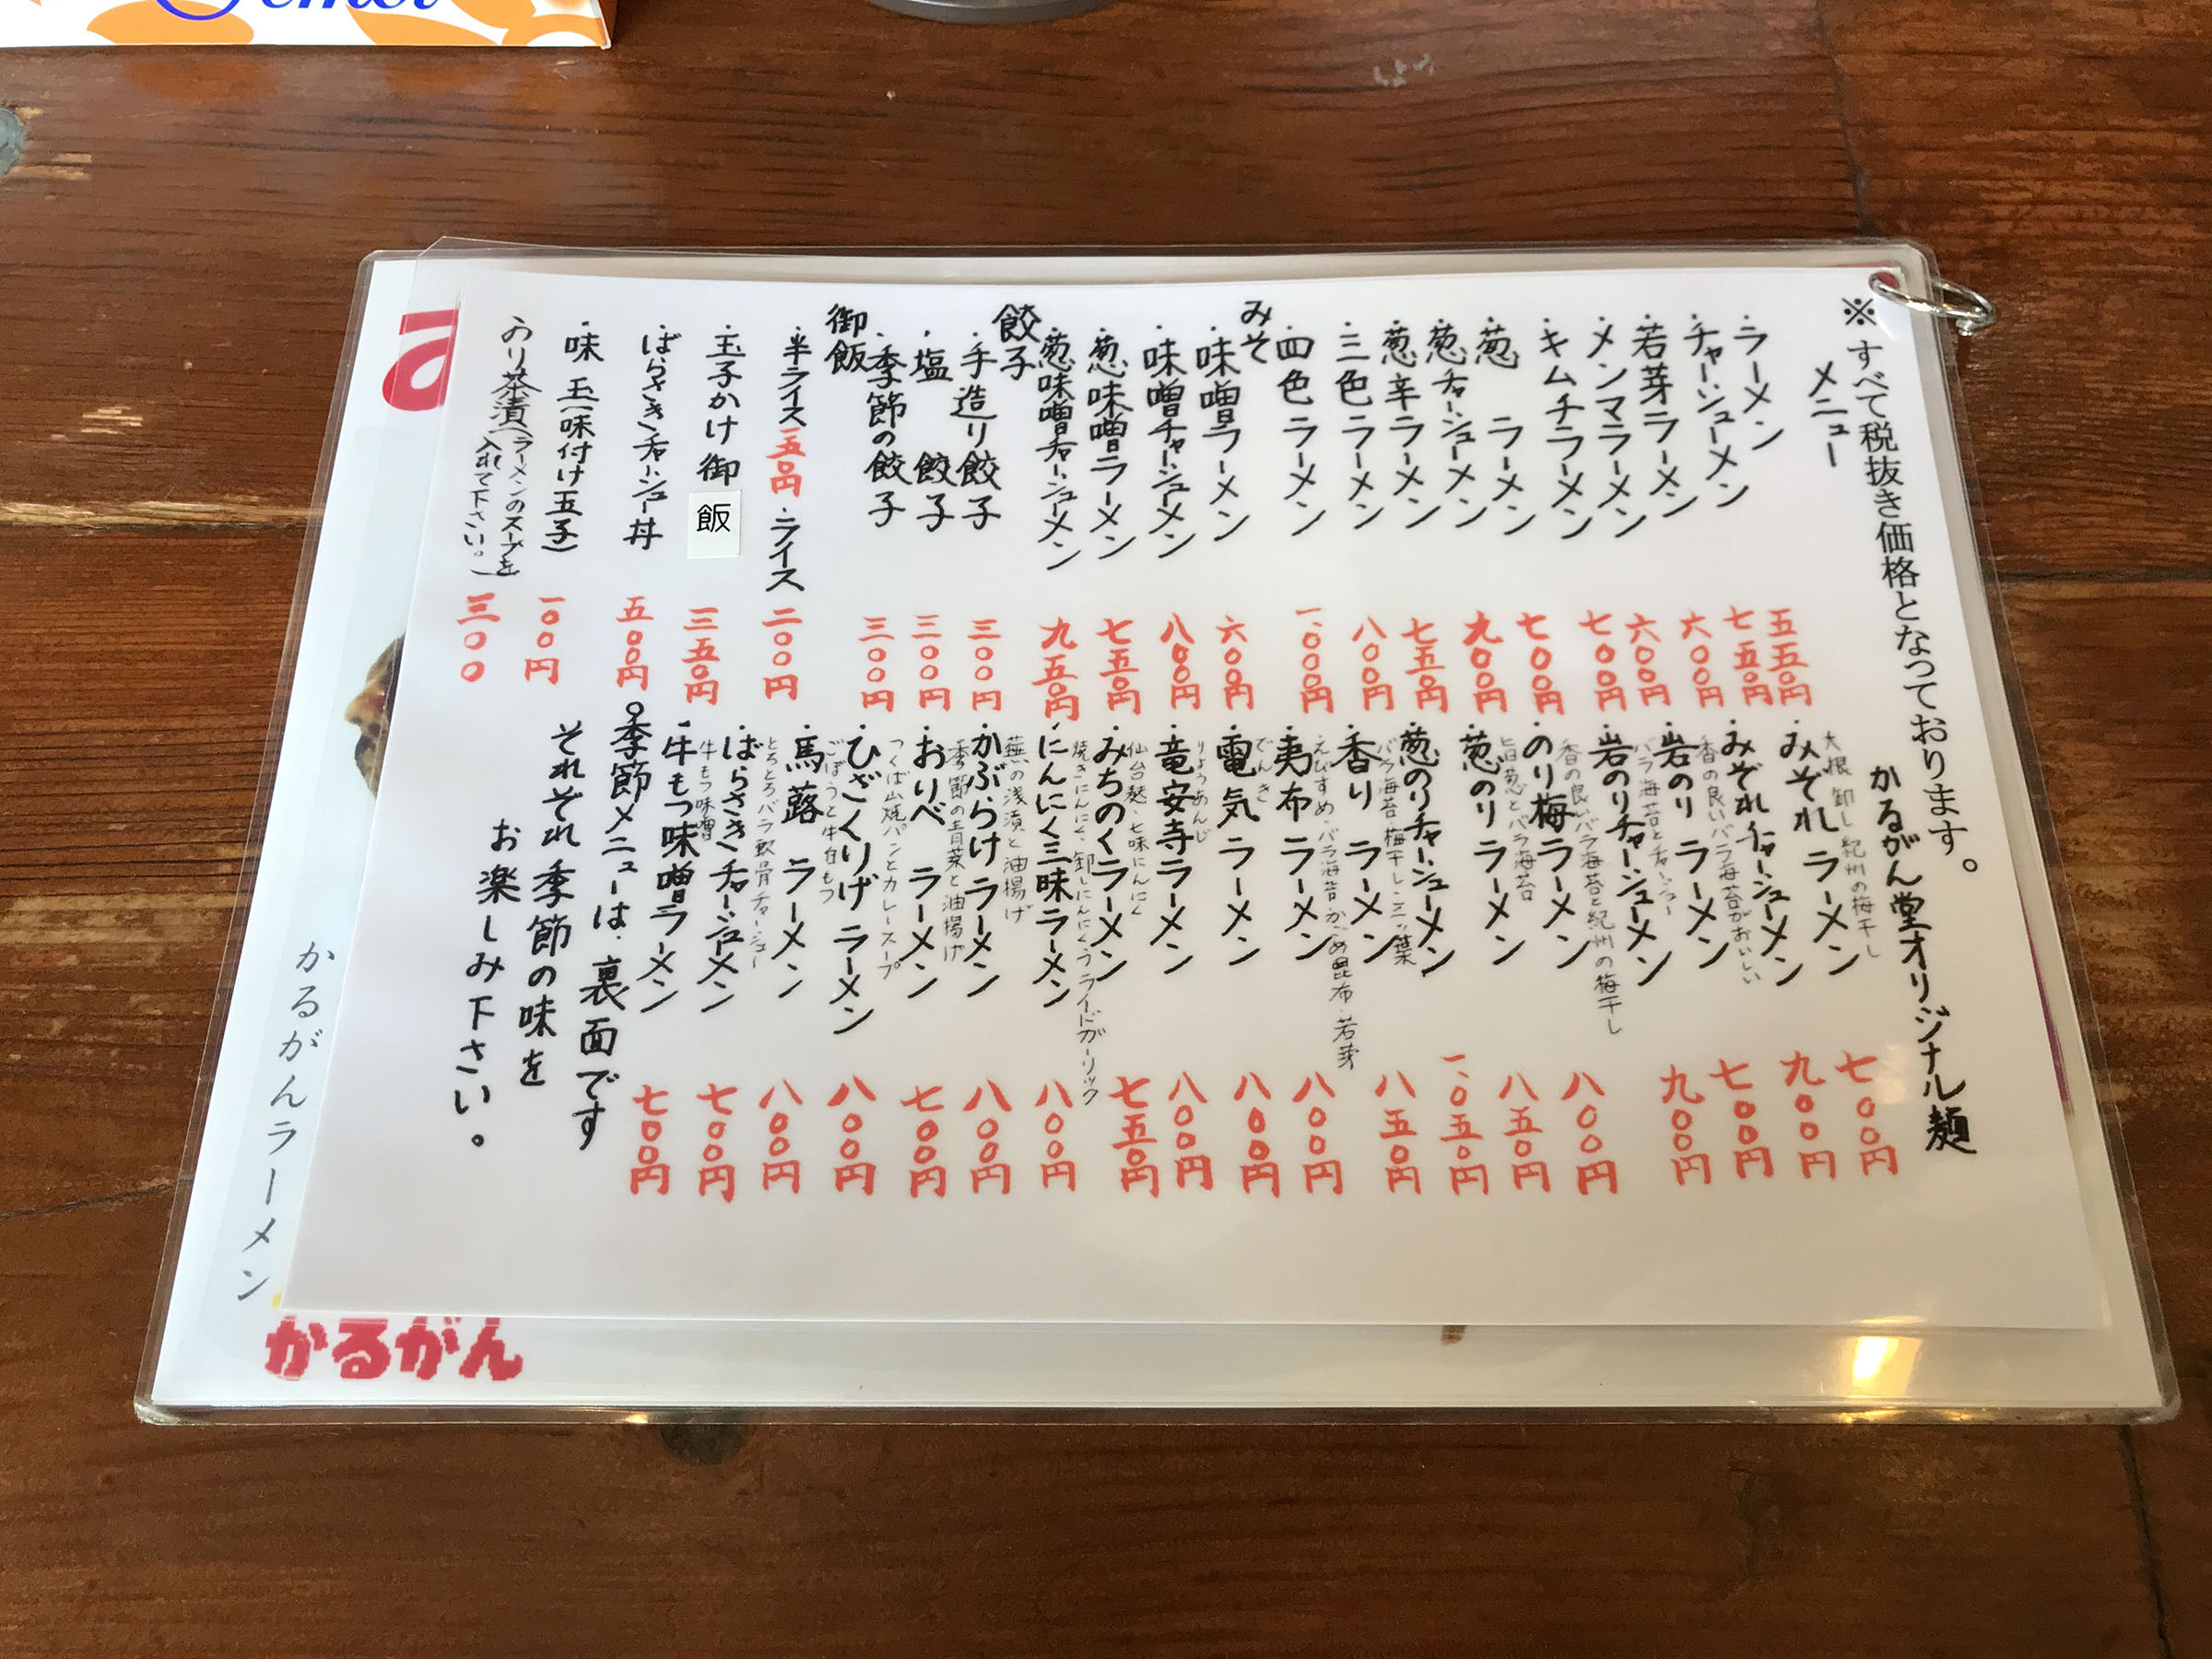 ※すべて税抜き価格となっております。
メニュー
・ラーメン 五五〇円
・チャーシューメン 七五〇円
・若芽ラーメン 六〇〇円
・メンマラーメン 六〇〇円
・キムチラーメン 七〇〇円
・葱 ラーメン 七〇〇円
・葱チャーシューメン 九〇〇円
・葱辛ラーメン 七五〇円
・三色ラーメン 八〇〇円
・四色ラーメン 一、〇〇〇円
みそ
・味噌ラーメン 六〇〇円
・味噌チャーシューメン 八〇〇円
・葱味噌ラーメン 七五〇円
・葱味噌チャーシューメン 九五〇円
餃子
・手造り餃子 三〇〇円
・塩 餃子 三〇〇円
・季節の餃子 三〇〇円
御飯
・半ライス一五〇円・ライス 二〇〇円
・玉子かけ御飯 三五〇円
・ばらさきチャーシュー丼 五〇〇円
・味玉(味付け玉子) 一〇〇円
・のり茶漬(ラーメンのスープを入れて下さい。) 三〇〇
かるがん堂オリジナル麺
大根卸し 紀州の梅干し
・みぞれラーメン 七〇〇円
・みぞれチャーシューメン 九〇〇円
香の良いバラ海苔がおいしい
・岩のりラーメン 七〇〇円
バラ海苔とチャーシュー
・岩のりチャーシューメン 九〇〇円
香の良いバラ海苔と紀州の梅干し
・のり梅ラーメン 八〇〇円
旨葱とバラ海苔
・葱のりラーメン 八五〇円
・葱のりチャーシューメン 一、〇五〇円
バラ海苔・梅干し・三ッ葉
・香りラーメン 八五〇円
えびすめ・バラ海苔・かごめ昆布・若芽
・夷布ラーメン 八〇〇円
でんき
・電気ラーメン 八〇〇円
りょうあんじ
・竜安寺ラーメン 八〇〇円
仙台麩・七味にんにく
・みちのくラーメン 七五〇円
焼きにんにく、卸しにんにく、フライドガーリック
・にんにく三昧ラーメン 八〇〇円
蕪の浅漬と油揚げ
・かぶらけラーメン 八〇〇円
季節の青菜と油揚げ
・おりべ ラーメン 七〇〇円
つくば山焼パンとカレースープ
・ひざくりげラーメン 八〇〇円
ごぼうと牛白もつ
・馬蕗 ラーメン 八〇〇円
とろとろバラ軟骨チャーシュー
・ばらさきチャーシューメン 七〇〇円
牛もつ味噌
・牛もつ味噌ラーメン 七〇〇円
季節メニューは、裏面です
それぞれ季節の味を
お楽しみ下さい。
かるがんラーメン
かるがん